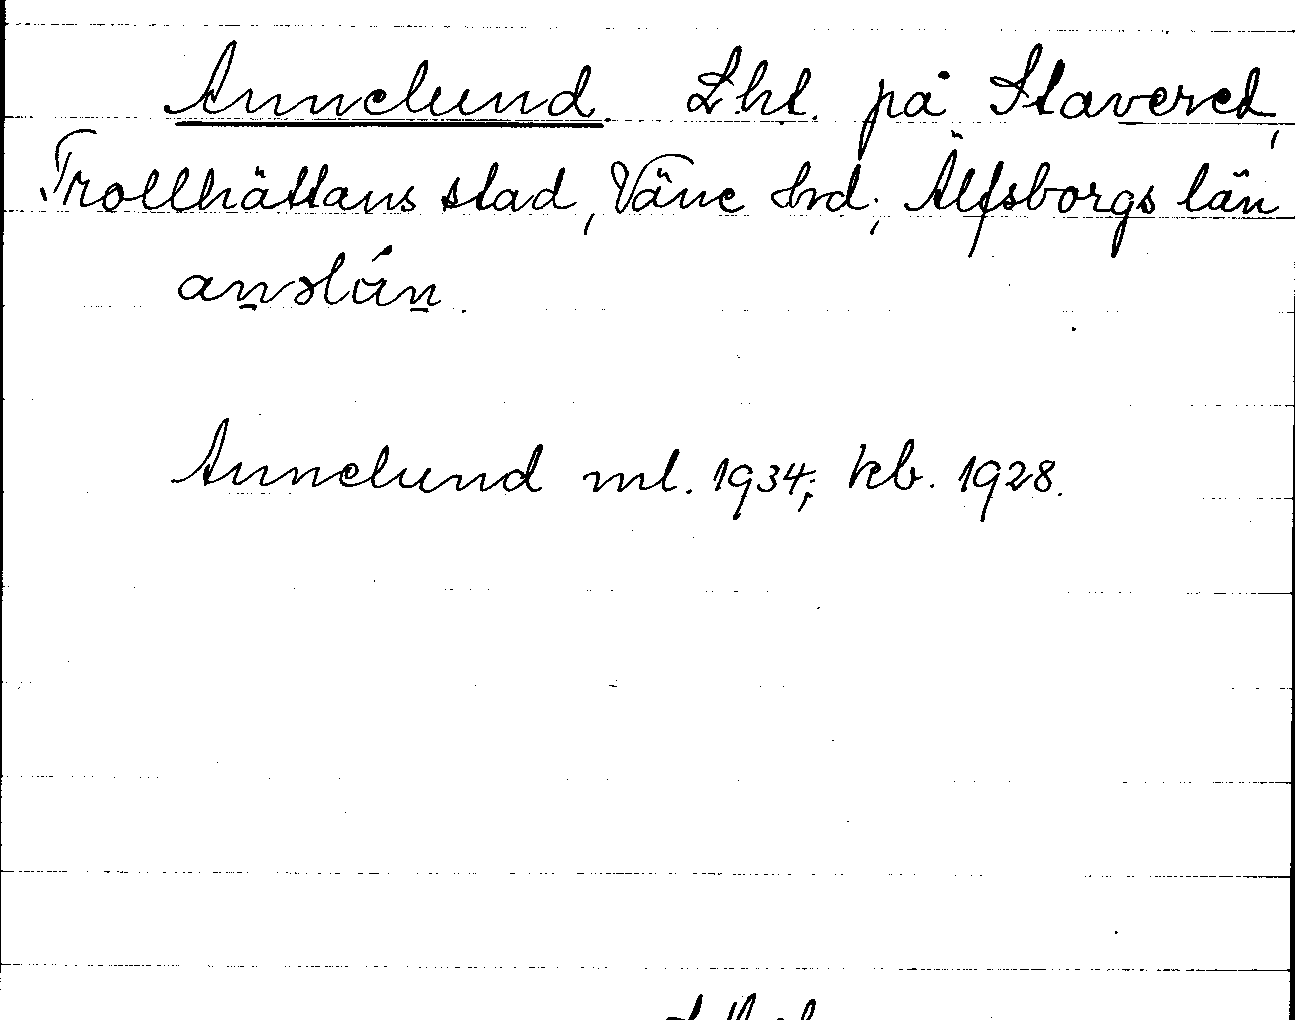 Annelund. Lht. på Slaveret,
Trollhättans stad, Väne hrd; Älfsborgs län
Annelund ml. 1934; kb. 1928.